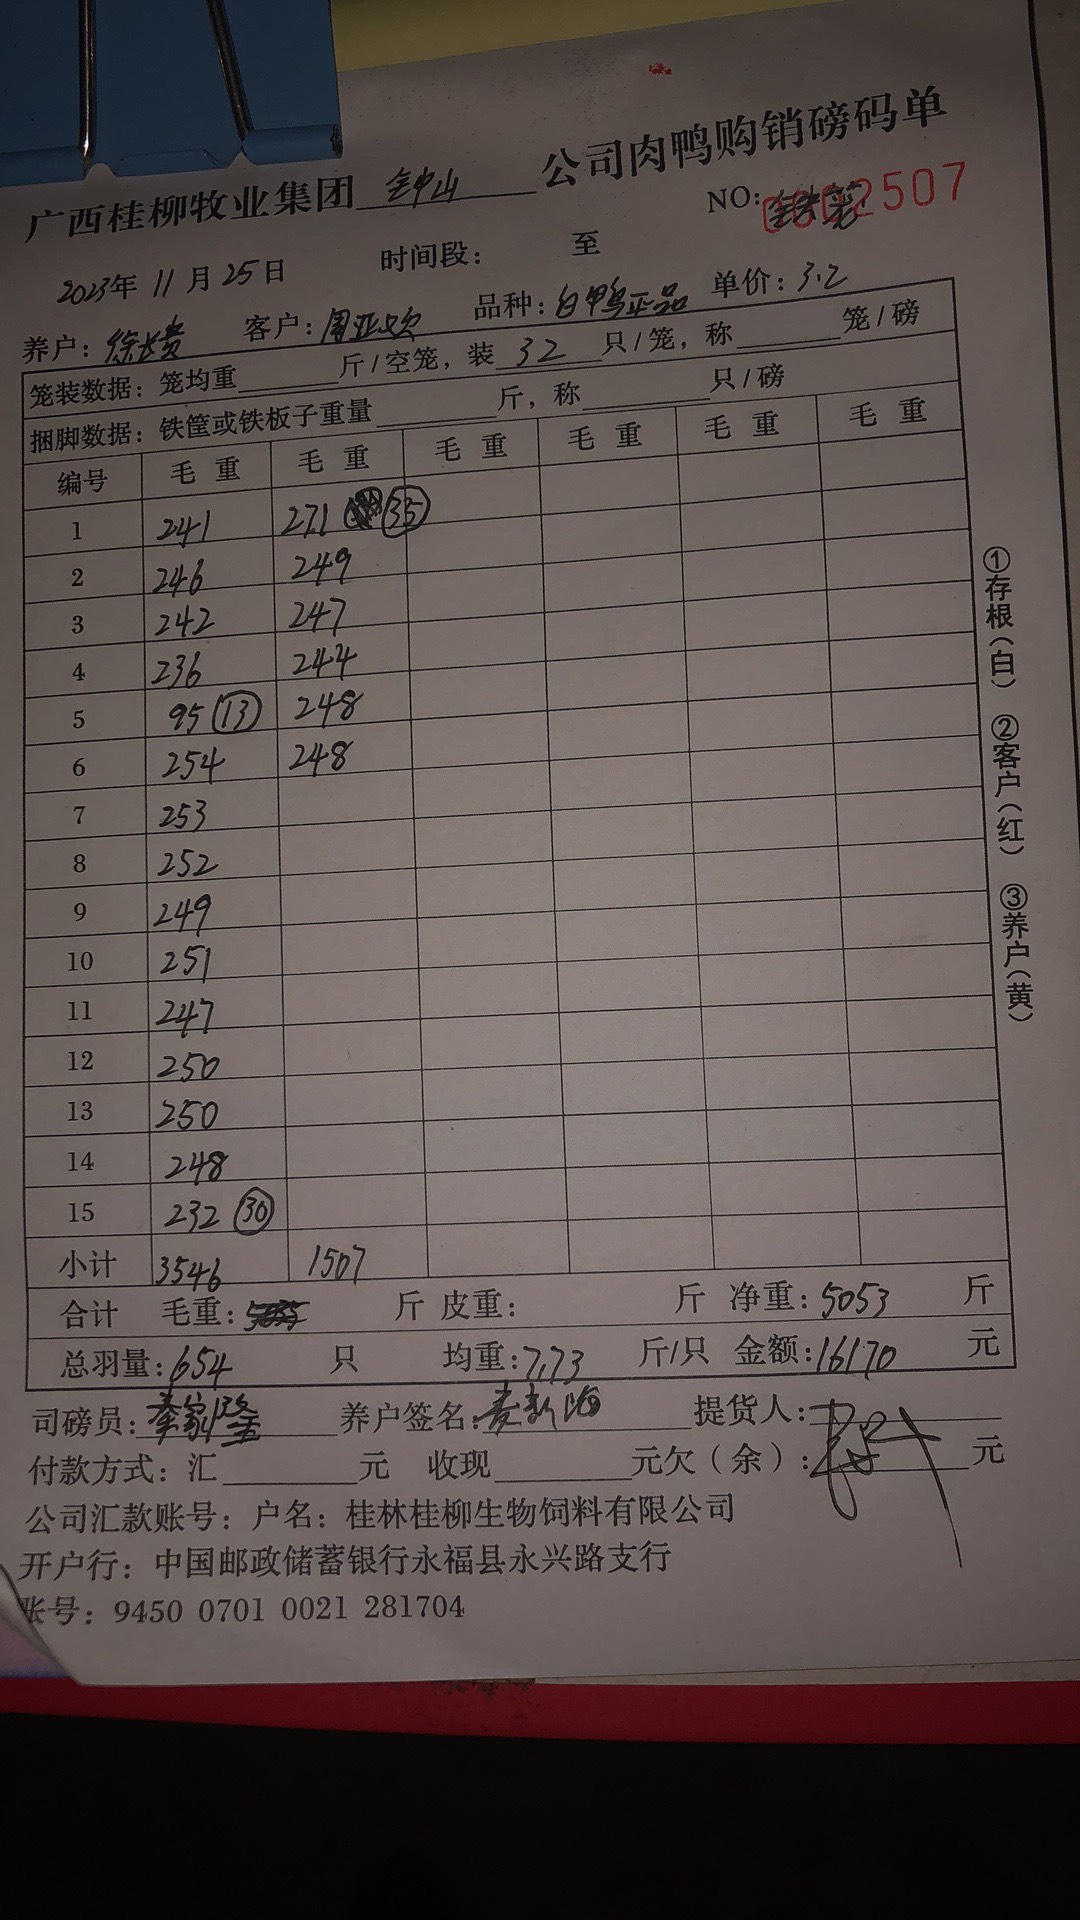 广西桂柳牧业集团 钟山 公司肉鸭购销磅码单
NO: 0002507
2023年 11月 25日 时间段： 至
养户：徐长贵 客户：周亚欢 品种：白鸭正品 单价：3.2
笼装数据：笼均重 斤/空笼，装 32 只/笼，称 笼/磅
捆脚数据：铁筐或铁板子重量 斤，称 只/磅
编号 毛重 毛重 毛重 毛重 毛重 毛重
1 241 271 (35)
2 246 249
3 242 247
4 236 244
5 95 (13) 248
6 254 248
7 253
8 252
9 249
10 251
11 247
12 250
13 250
14 248
15 232 (30)
小计 3546 1507
合计 毛重： 斤 皮重： 斤 净重：5053 斤
总羽量：654 只 均重：7.73 斤/只 金额：16170 元
司磅员：秦家隆 养户签名： 提货人：
付款方式：汇 元 收现 元欠（余）： 元
公司汇款账号：户名：桂林桂柳生物饲料有限公司
开户行：中国邮政储蓄银行永福县永兴路支行
账号：9450 0701 0021 281704
①存根（白） ②客户（红） ③养户（黄）